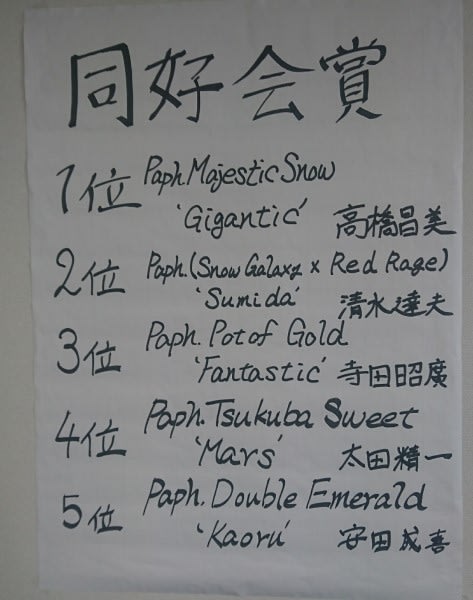 同好会賞
1位 Paph. Majestic Snow
'Gigantic' 高橋昌美
2位 Paph. (Snow Galaxy x Red Rage)
'Sumida' 清水達夫
3位 Paph. Pot of Gold
'Fantastic' 寺田昭廣
4位 Paph. Tsukuba Sweet
'Mars' 太田精一
5位 Paph. Double Emerald
'Kaoru' 安田成喜